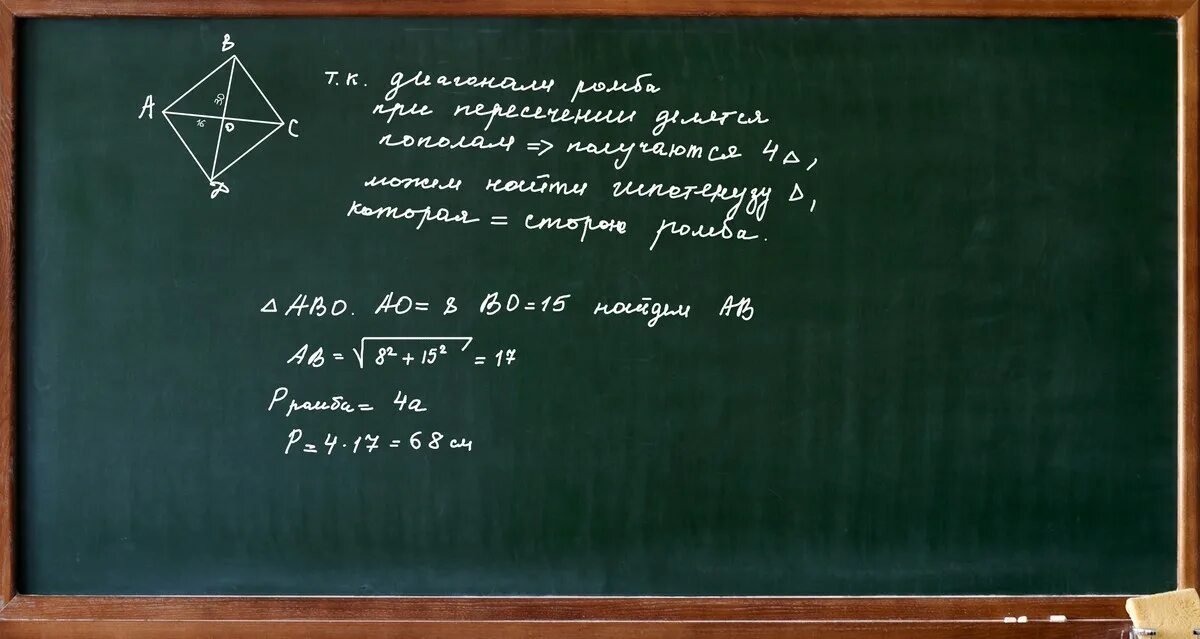 B
A
30
16
O
C
D
т.к. диагонали ромба
при пересечении делятся
пополам => получаются 4 △,
можем найти гипотенузу △,
которая = стороне ромба.
△ ABO. AO = 8 BO = 15 найдем AB
AB = √8² + 15² = 17
P ромба = 4a
P = 4 · 17 = 68 см